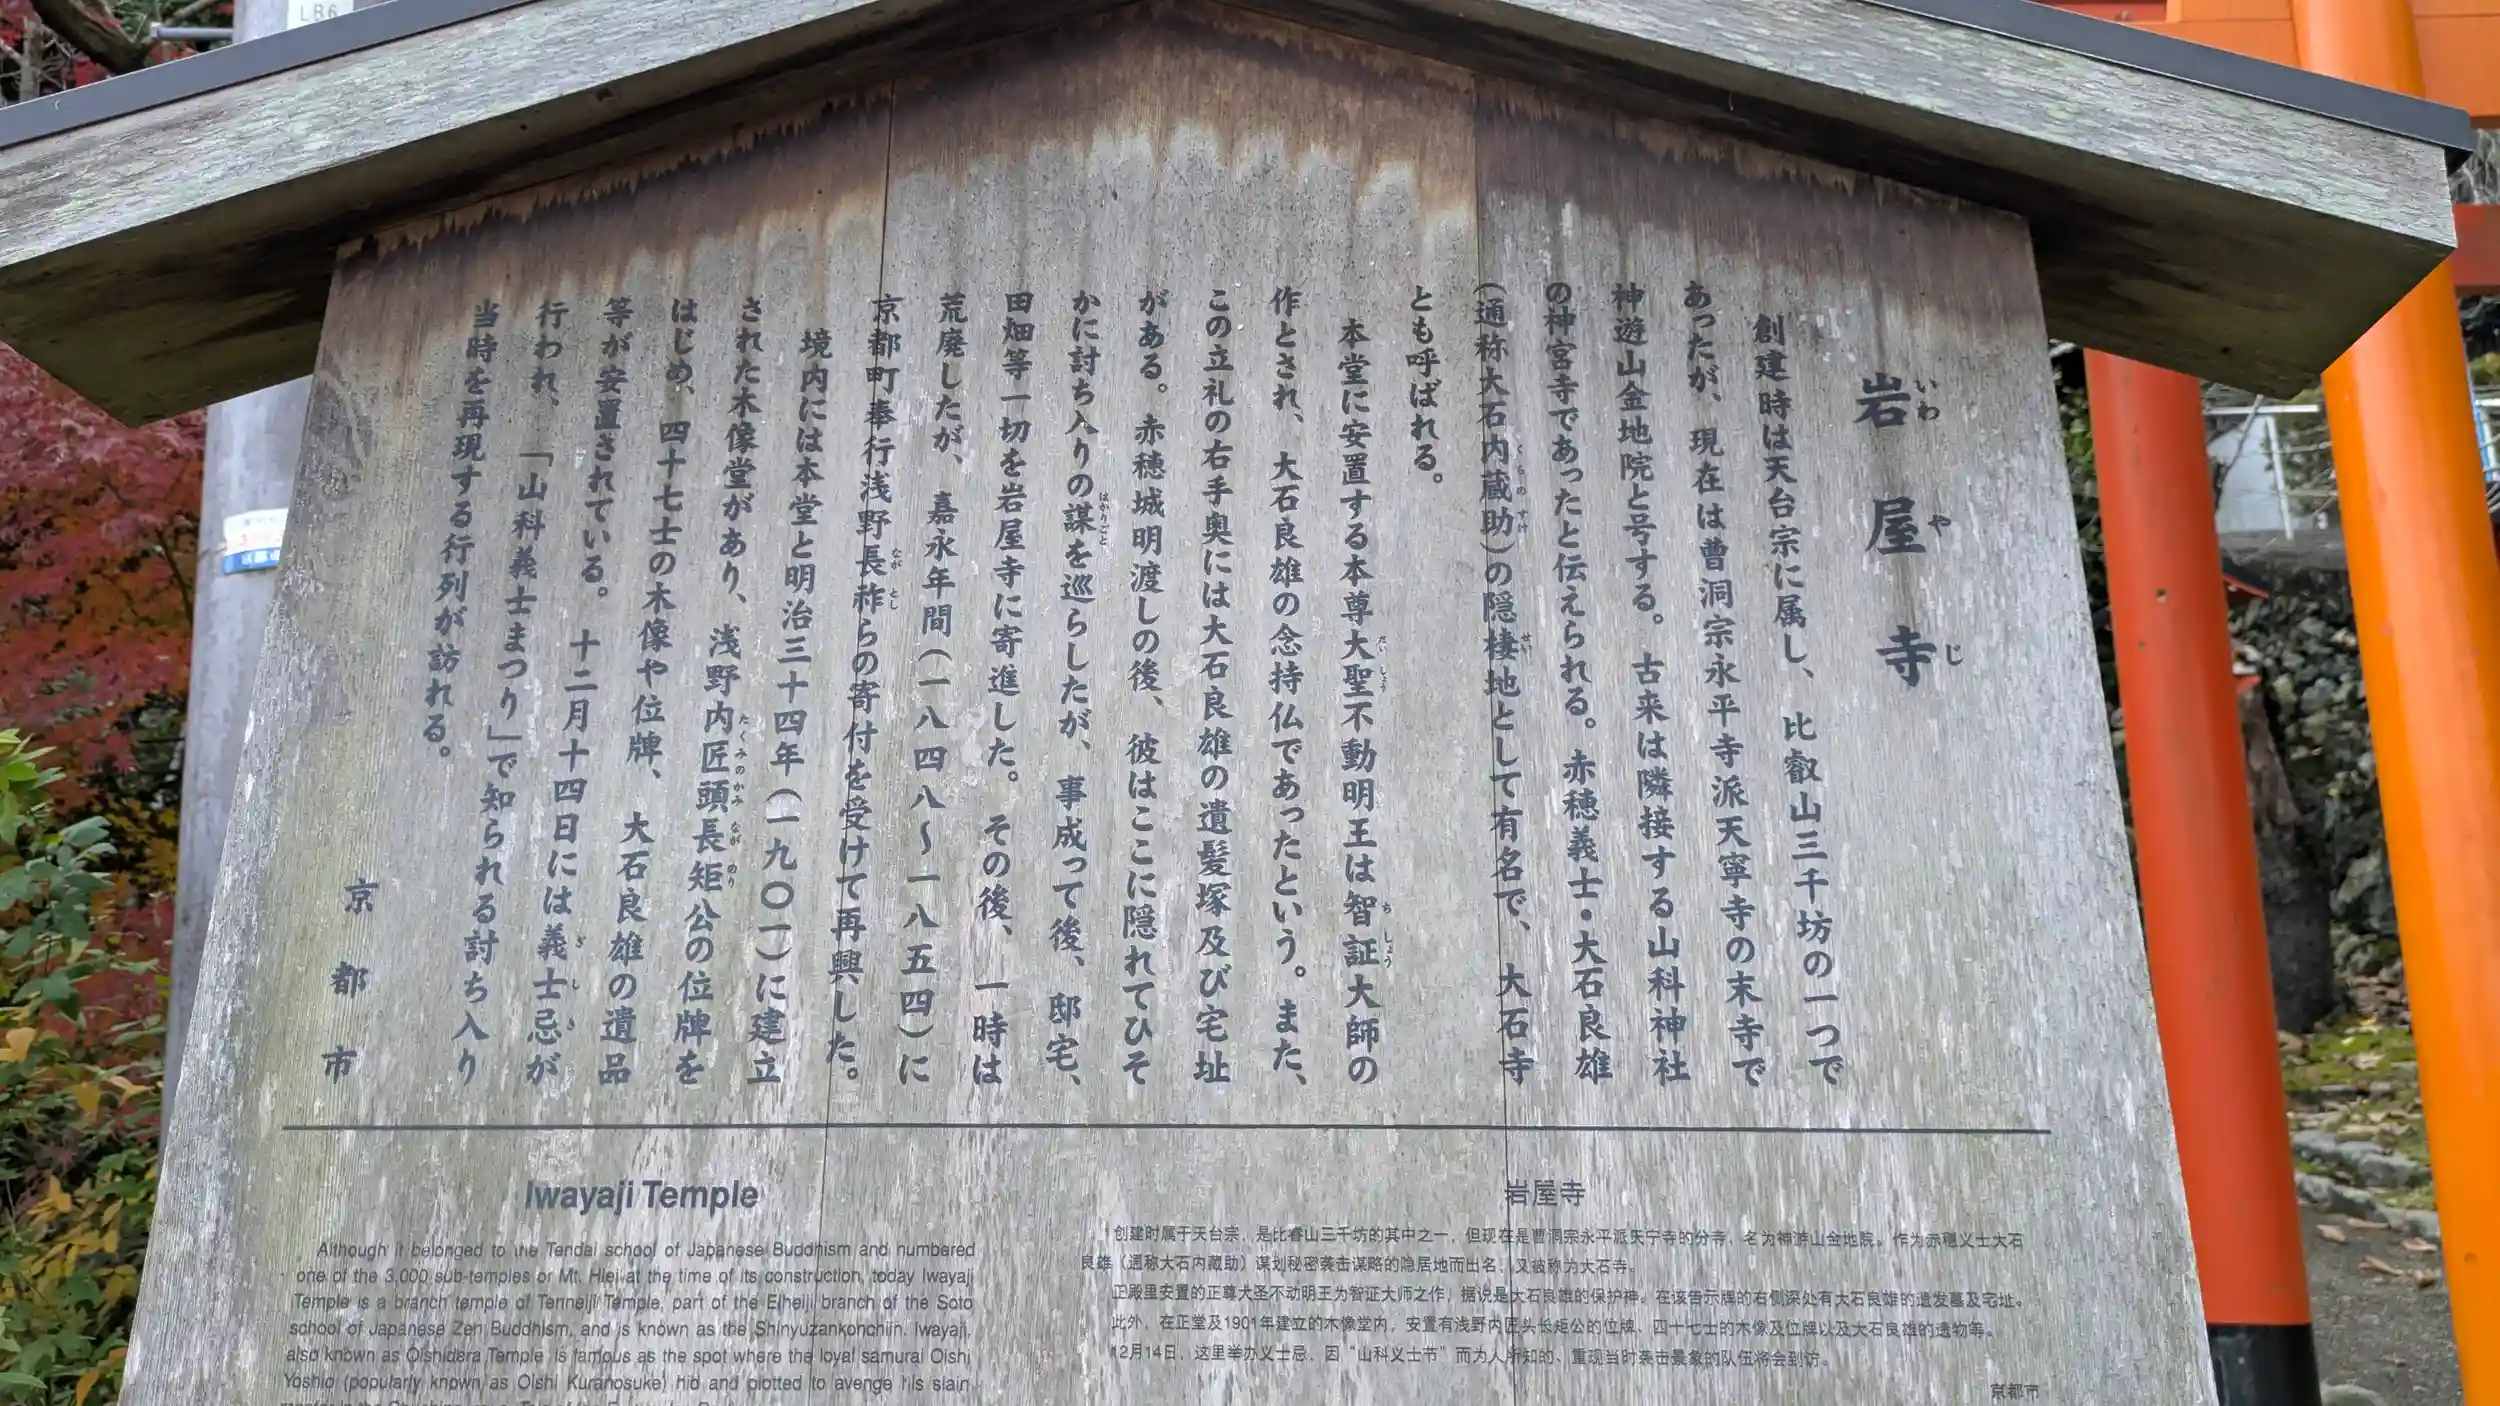 岩屋寺
いわやじ
創建時は天台宗に属し、比叡山三千坊の一つで
あったが、現在は曹洞宗永平寺派天寧寺の末寺で
神遊山金地院と号する。古来は隣接する山科神社
の神宮寺であったと伝えられる。赤穂義士・大石良雄
(通称大石内蔵助)の隠棲地として有名で、大石寺
くらのすけ
せい
とも呼ばれる。
本堂に安置する本尊大聖不動明王は智証大師の
だいしょう
ちしょう
作とされ、大石良雄の念持仏であったという。また、
この立札の右手奥には大石良雄の遺髪塚及び宅址
がある。赤穂城明渡しの後、彼はここに隠れてひそ
かに討ち入りの謀を巡らしたが、事成って後、邸宅、
はかりごと
田畑等一切を岩屋寺に寄進した。その後、一時は
荒廃したが、嘉永年間(一八四八〜一八五四)に
京都町奉行浅野長祚らの寄付を受けて再興した。
ながとし
境内には本堂と明治三十四年(一九〇一)に建立
された木像堂があり、浅野内匠頭長矩公の位牌を
たくみのかみながのり
はじめ、四十七士の木像や位牌、大石良雄の遺品
等が安置されている。十二月十四日には義士忌が
ぎしき
行われ、「山科義士まつり」で知られる討ち入り
当時を再現する行列が訪れる。
京都市
Iwayaji Temple
Although it belonged to the Tendai school of Japanese Buddhism and numbered
one of the 3,000 sub-temples or Mt. Hiei at the time of its construction, today Iwayaji
Temple is a branch temple of Tenneiji Temple, part of the Eiheiji branch of the Soto
school of Japanese Zen Buddhism, and is known as the Shinyuzankonchiin. Iwayaji,
also known as Oishidera Temple is famous as the spot where the loyal samurai Oishi
Yoshio (popularly known as Oishi Kuranosuke) hid and plotted to avenge his slain
岩屋寺
创建时属于天台宗，是比睿山三千坊的其中之一，但现在是曹洞宗永平派天宁寺的分寺，名为神游山金地院。作为赤穗义士大石
良雄（通称大石内藏助）谋划秘密袭击谋略的隐居地而出名，又被称为大石寺。
正殿里安置的正尊大圣不动明王为智证大师之作，据说是大石良雄的保护神。在该告示牌的右侧深处有大石良雄的遗发墓及宅址。
此外，在正堂及1901年建立的木像堂内，安置有浅野内匠头长矩公的位牌、四十七士的木像及位牌以及大石良雄的遗物等。
12月14日，这里举办义士忌，因“山科义士节”而为人所知的、重现当时袭击景象的队伍将会到访。
京都市
LB6